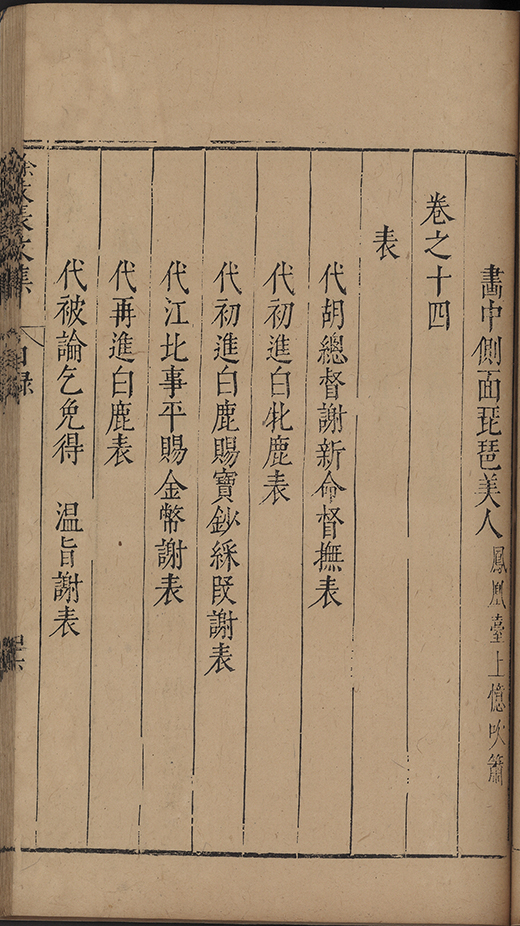 畫中側面琵琶美人 鳳凰臺上憶吹簫
卷之十四
表
代胡總督謝新命督撫表
代初進白牝鹿表
代初進白鹿賜寶鈔綵段謝表
代江北事平賜金幣謝表
代再進白鹿表
代被論乞免得 溫旨謝表
徐文長文集 目録